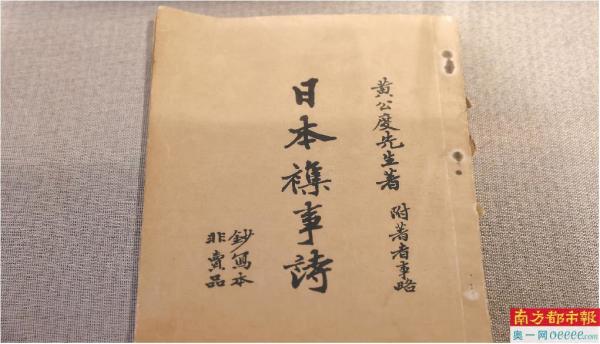 黃公度先生著 附著者事略
日本襍事詩
鈔寫本
非賣品
南方都市報
奥一网oeeee.com